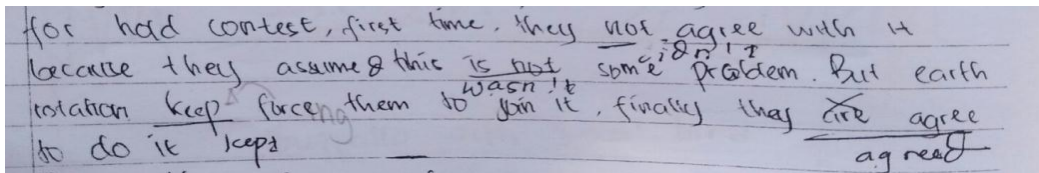 for had contest, first time, they not agree with it
isn't
because they assume this is not some problem. But earth
wasn't
rotation keep force them to join it, finally they are agree
ing
to do it kept agreed